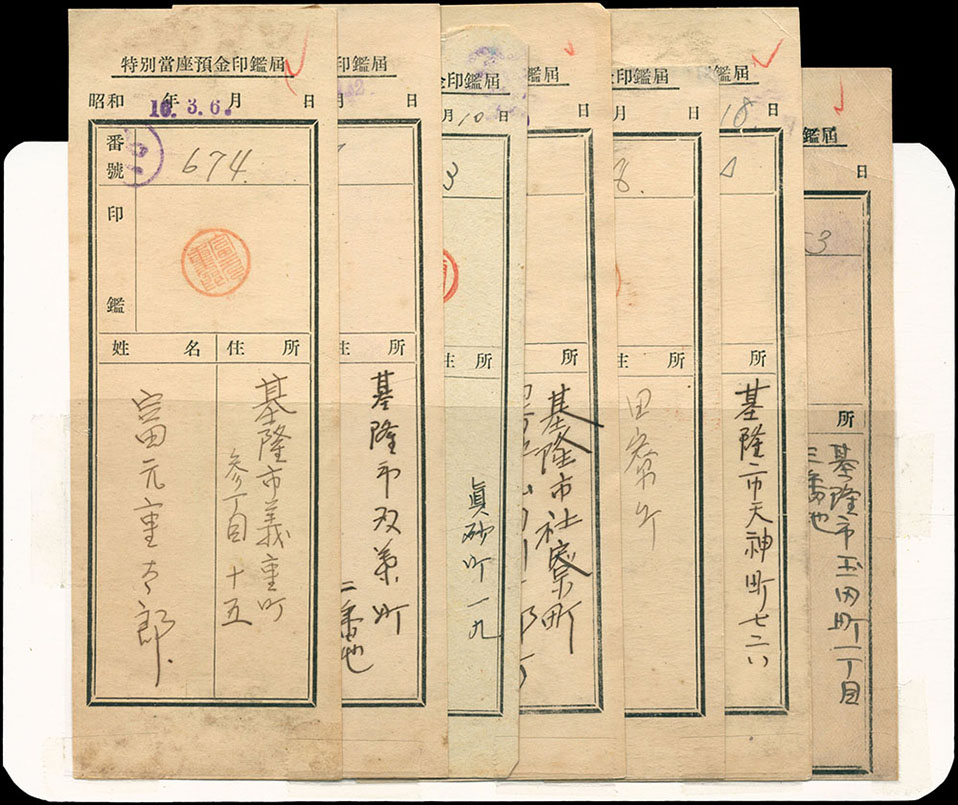 特別當座預金印鑑届
昭和 年 月 日
16. 3. 6.
番號
674
印鑑
姓名 住所
基隆市義重町
参丁目十五
富元重太郎
印鑑届
月 日
住所
基隆市双葉町
二番地
金印鑑届
月10日
3
住所
眞砂町一九
鑑届
日
所
基隆市社寮町
金印鑑届
月 日
8.
住所
田寮町
鑑届
18日
所
基隆市天神町七二ノ
鑑届
日
53
所
基隆市玉田町一丁目
三番地